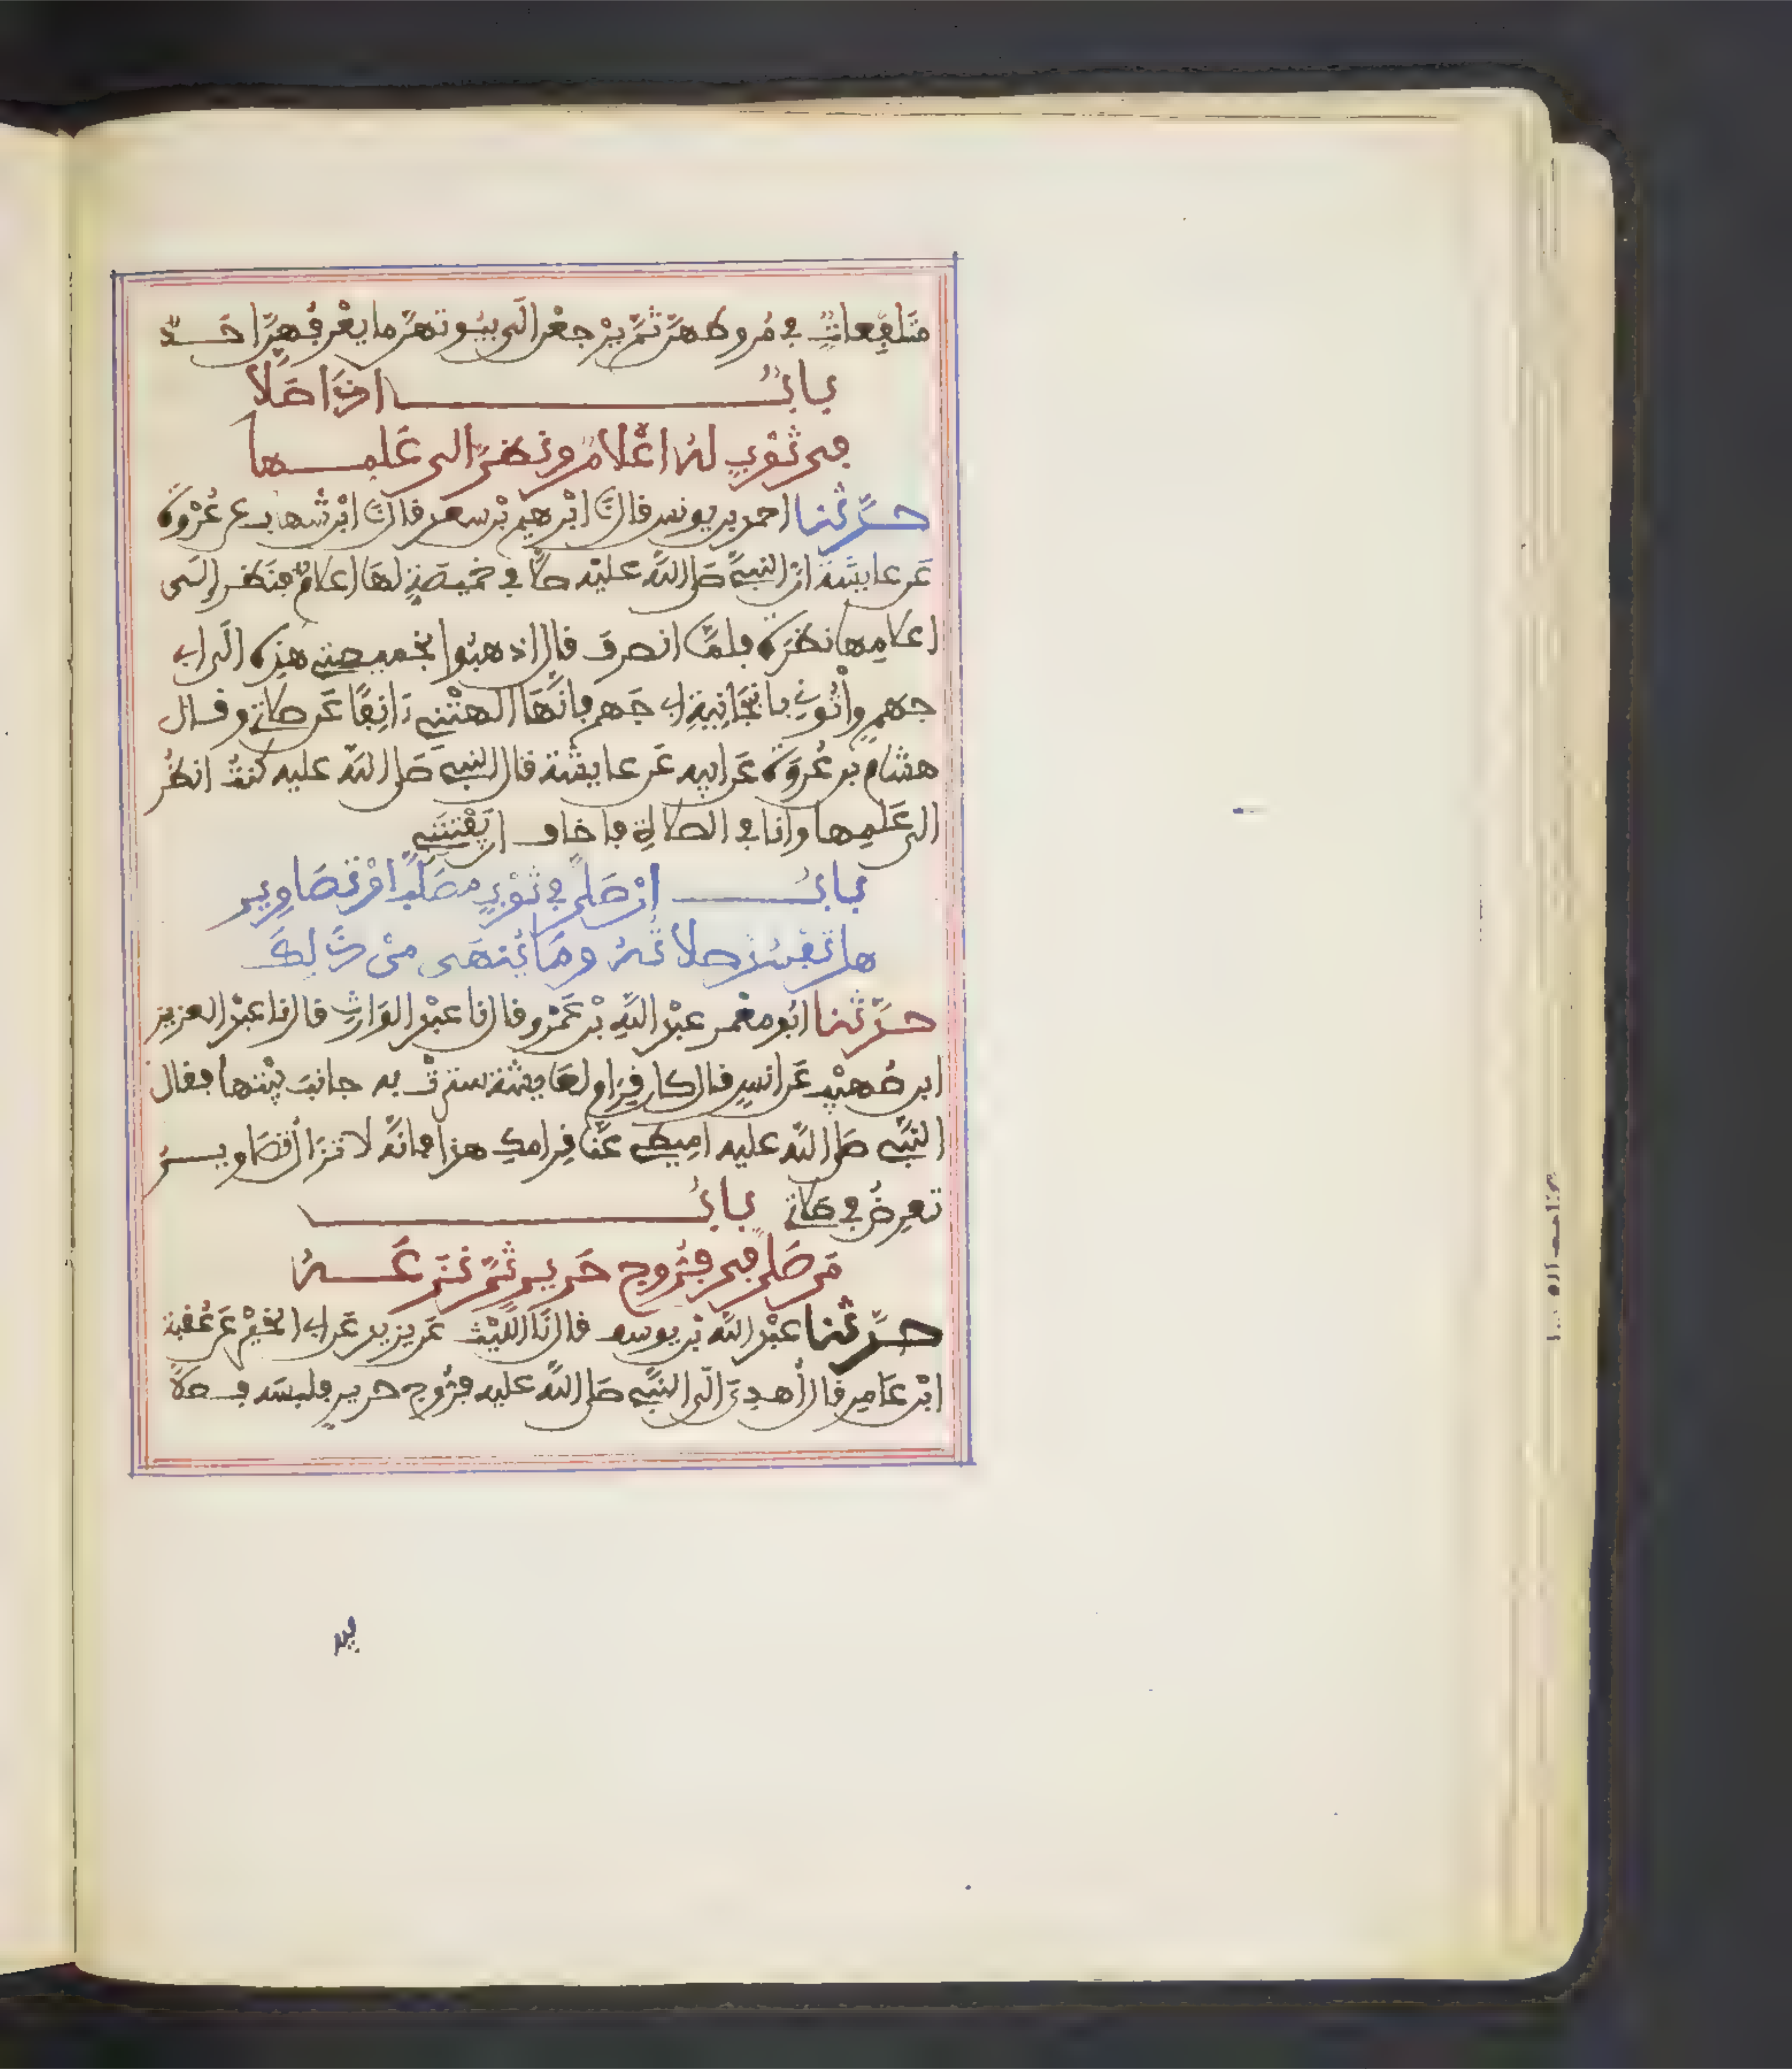 متلفعاتٍ في مُروطهنّ ثمّ يرْجعْن الَى بيُوتهنّ ما يعْرفُهنّ احَدٌ
بابٌ اذَا صَلّا
في ثوْبٍ لهُ اعْلامٌ ونظرَ الى عَلمها
حدّثنا احمد بن يونس قال نَا ابْرهيم بْن سعد قال نَا ابْن شهاب عن عُرْوةَ
عَن عايشة انّ النبيَّ صَلى اللّه عليْه صلَّا في خميصةٍ لهَا اعلامٌ فنَظر الَى
اعلامِها نظرَةً فلمَّا انصرفَ قال اذهبُوا بخميصتي هذِه الَى ابي
جهمٍ وأْتُوني بانبَجَانِيةِ ابي جَهم فانَّهَا الهتْني ءَانِفًا عَن صلاتي وقال
هشام بن عُروَةَ عَن ابيه عَن عايشة قال النبيّ صَلى اللّه عليه كنتُ انظُر
الى عَلمِها وانا في الصلاةِ فاخاف ان يَفْتنَني
بابُ انْ صَلى في ثوْبٍ مصَلّبٍ اوْ تصَاوِير
هل تفْسُد صلاتُهُ ومَا يُنهَى منْ ذَالِكَ
حدّثنا ابُو معْمر عبْد اللّهِ بْن عَمْرو قال نا عبْد الوَارثِ قال نا عبْد العزيز
ابن صُهيْب عَن انسٍ قال كان قِرَام لعَايشة سترتْ به جانبَ بيْتها فقال
النبّي صَلى اللّه عليه امِيطي عنَّا قِرامكِ هذا فانهُ لا تزَال تصَاويرُ
تعرِضُ في صلاتي بابُ
مَن صَلى في فرُّوج حَرير ثمّ نزَعَهُ
حدّثنا عبْد اللّه بْن يوسف قال نَا اللّيْث عَن يزيد عَن ابي الخيْر عَن عُقبة
ابْن عَامِر قال أُهدِيَ الَى النبّي صَلى اللّه عليه فرُّوج حرير فلبسَه فصلَّا